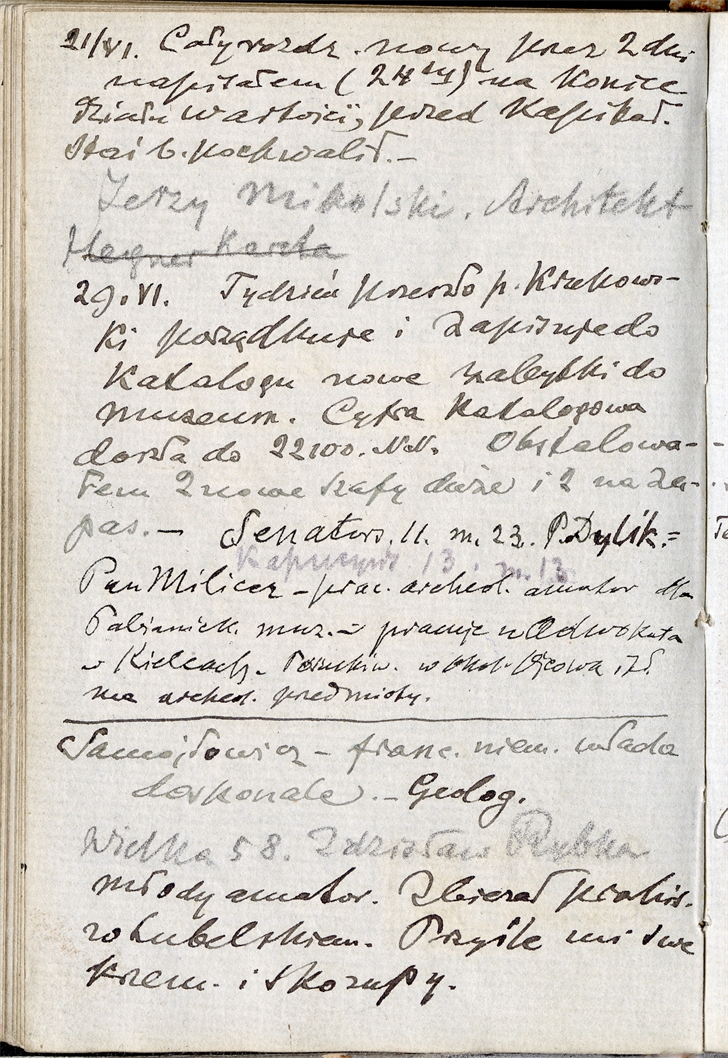 21/VI. Cały rozdz. nowy przez 2 dni
napisałem (24ty) na końce
działu wartości, przed Kapitał.
Staś b. pochwalił.—
Jerzy Mikolski. Architekt
Karola
29.VI. Tydzień przeszło p. Krukows-
ki porządkuje i zapisuje do
Katalogu nowe zabytki do
muzeum. Cyfra Katalogowa
doszła do 22100. NN. Obstalowa-
łem 2 nowe szafy duże i 2 na za-
pas.— Senators. 11. m. 23. P. Dylik.=
Kapucyńs 13 m. 13
Pan Milicer – prac. archeol. amator dla
Pabianick. muz.– pracuje u Adwokata
w Kielcach. Poszukiw. w okol. i zb.
ma archeol. przedmioty.
Samojłowicz – franc. niem. włada
doskonale.– Geolog.
Wielka 58. Zdzisław Rybka
młody amator. Zbierał prahis.
w Lubelskiem. Przyśle mi swe
krzem. i skorupy.